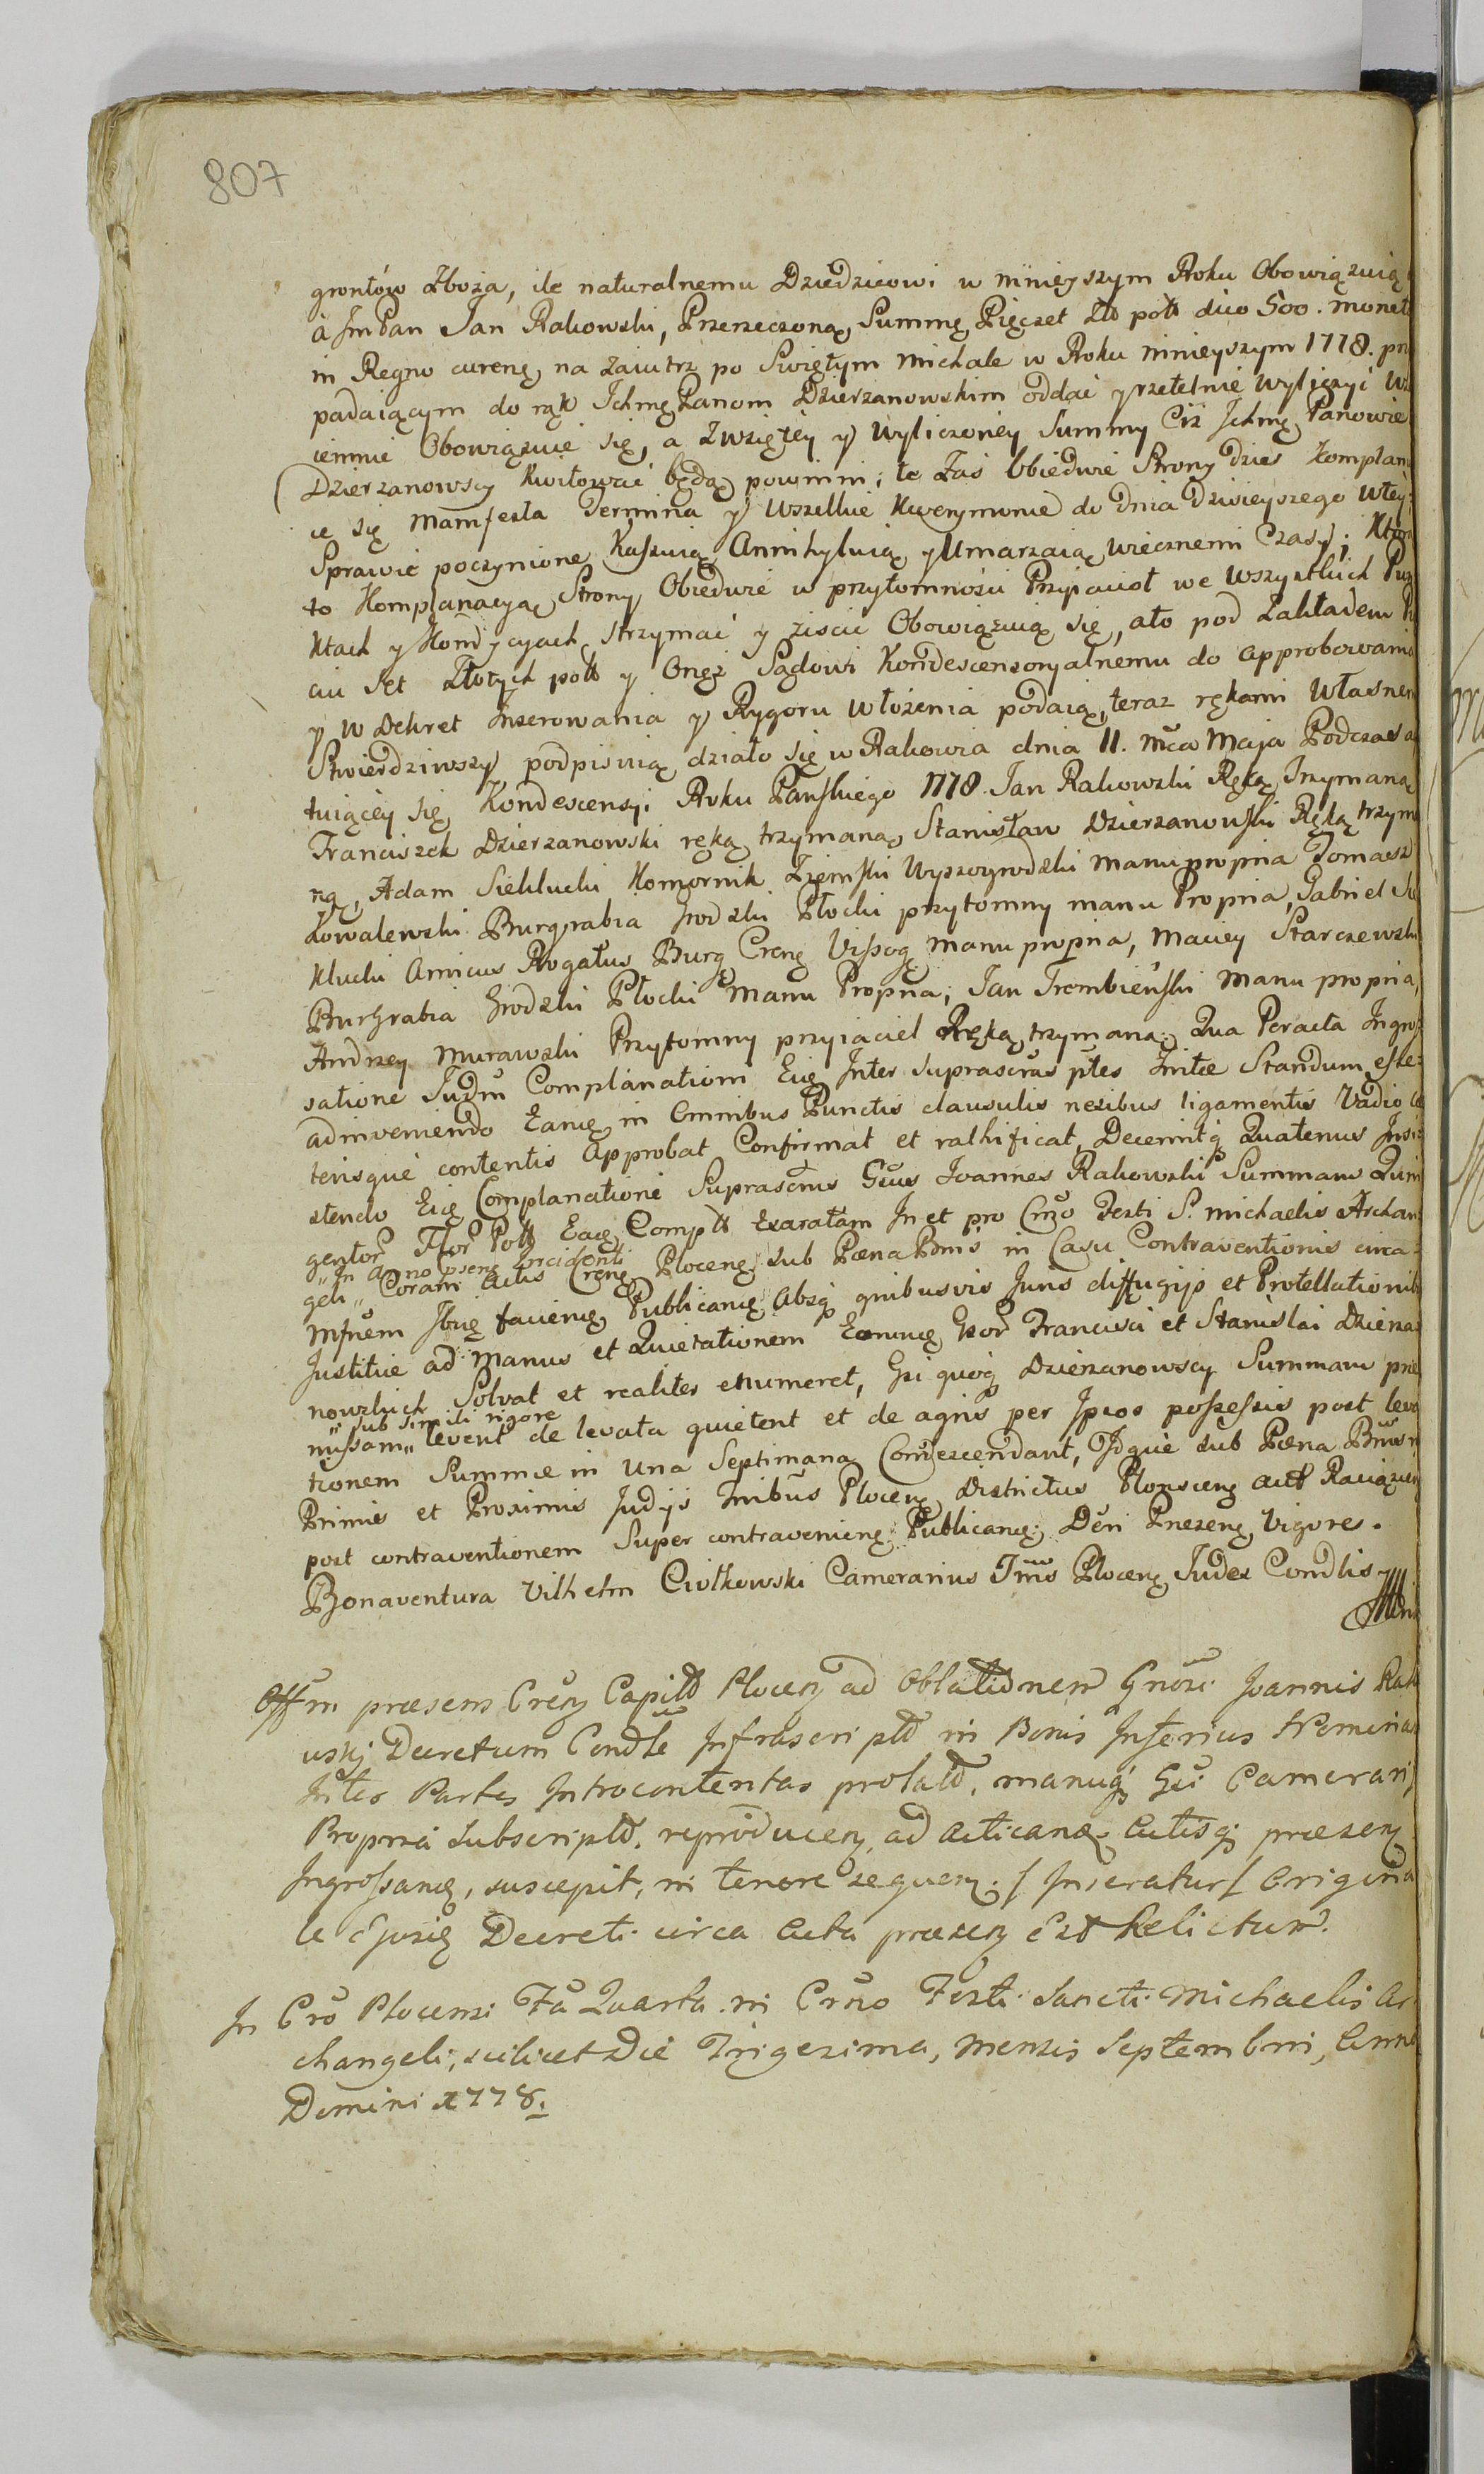 807
grontów Zboża, ile naturalnemu Dziedzicowi w ninieyszym Roku Obowiązuią
à JmPan Jan Rakowski, Przerzeczoną Summę Pięczet Złł polł dico 500. monet
in Regno curenę na zaiutrz po Swiętym Michale w Roku ninieyszym 1778. prz
padaiącym do rąk Ichmę Panom Dzierzanowskim oddać y rzetelnie wyliczyć w
iemnie Obowiązuie się, a Zwziętey y wyliczoney Summy Ciż Ichmę Panowie
Dzierzanowscy Kwitować będą powinni; te Zaś Obiedwie Strony dziś Komplanu
ie się Manifesta Termina y wszelkie Kwerymonie do dnia dzisieyszego wtey
Sprawie poczynione Kaszuią Annihyluią y Umarzaią wiecznemi Czasy; Ktor
to Komplanacyą Strony Obiedwie w przytomności Przyiaciół we wszystkich Pun
ktach y Kondycyach strzymać y ziscić Obowiązuią się, ato pod Zakładem Pię
ciu Set Złotych polł y Onęż Sądowi Kondescensoryalnemu do approbowania
y w Dekret Inserowania y Rygoru włożenia podaią, teraz rękami własnem
Stwierdziwszy podpisuią działo się w Rakowia dnia 11. mca Maja Podczas a
tuiącey się Kondescensyi Roku Pańskiego 1778. Jan Rakowski Ręką Trzymaną
Franciszek Dzierzanowski ręką trzymaną, Stanisław Dzierzanowski Ręką trzym
ną, Adam Sieklucki Komornik Ziemski Wyszogrodzki manu propria Tomasz
Kowalewski Burgrabia Grodzki Płocki przytomny manu Propria, Gabriel Sie
klucki Amicus Rogatus Burg Creng Vissog manu propria, Maciey Starczewski
Burgrabia Grodzki Płocki Manu Propria, Jan Trembieński Manu propria,
Andrzey Murawski Przytomny przyiaciel Ręką trzymaną; Qua Peracta Ingros
satione Judm Complanationi Eię Inter suprascras ptes Initæ Standum esse
adinveniendo Eamę in Omnibus Punctis clausulis nexibus ligamentis Vadio cæ
terisque contentis approbat Confirmat et rathificat, Decernitq Quatenus Insi
stendo Eię Complanationi Suprascrus Gsus Joannes Rakowski Summam Quin
gentor Flor Poll Eaę Complł Exaratam In et pro Crno Festi S. Michaelis Archan
„In anno psenę Incidenti
geli„ Coram Actis Crenę Plocenę sub Pæna Bms in Casu Contraventionis circa
mfnem Ibnę facienę Publicanę Absq quibusvis Juris diffugijs et Protellationib
Justitiæ ad Manus et Quietationem Eorumę Gsor Francisci et Stanislai Dzierza
nowskich Solvat et realiter enumeret, Gsi quoq Dzierzanowscy Summam præ
„sub simili rigore
missam„ levent de levata quietent et de agris per Ipsos possessis post leva
tionem Summæ in una Septimana Condescendant, Idque sub Pæna Bms n
Primis et Proximis Judijs Tribus Plocenę Districtus Plonscenę aut Raciązen
post contraventionem Super contravenienę Publicanę; Dcri Pnesenę Vigore.
Bonaventura Vilhelm Ciołkowski Camerarius Tms Plocenę Judex Condlis
Offm præsens Crenę Capitł Plocenę ad Oblationem Gnosi Joannis Rak
uskj Decretum Condle Infrascriptł in Bonis Inferius Nomina
Inter Partes Introcontentas prolatł, manuq Gsi Camerarij
Propria Subscriptł. reproducenę, ad acticanę Actisq præsenę
Ingrossanę, suscepit, in tenore sequenę. / Inseratur / Origina
le Ejusdę Decreti circa Acta præsenę Est Relictum.
In Cro Plocensi Fa Quarta in Crno Festi Sancti Michaelis Ar
changeli, scilicet Die Trigesima, Mensis Septembris, Anno
Domini 1778.